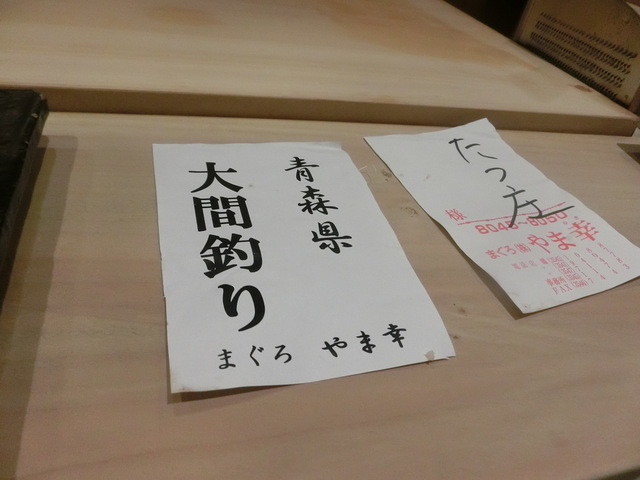 青森県
大間釣り
まぐろ やま幸
たつ庄
様
8048~8050
まぐろ
やま幸